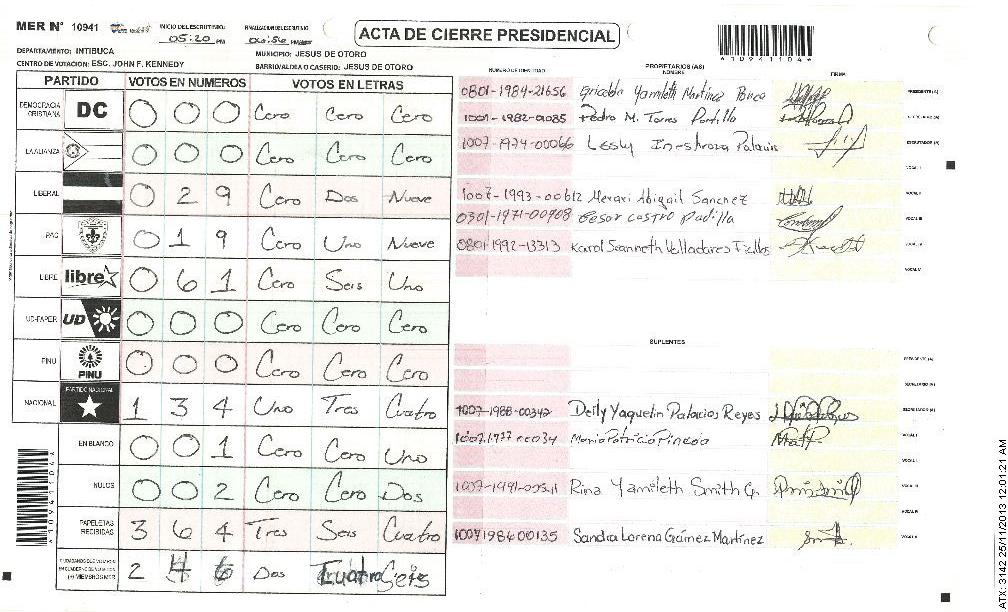 MER N° 10941 INICIO DEL ESCRUTINIO: 05:20 PM FINALIZACION DEL ESCRUTINIO 06:56 PM
ACTA DE CIERRE PRESIDENCIAL
*10941104*
DEPARTAMENTO: INTIBUCA MUNICIPIO: JESUS DE OTORO
CENTRO DE VOTACION: ESC. JOHN F. KENNEDY BARRIO/ALDEA O CASERIO: JESUS DE OTORO
PARTIDO VOTOS EN NUMEROS VOTOS EN LETRAS
DEMOCRACIA CRISTIANA DC 0 0 0 Cero Cero Cero
LA ALIANZA 0 0 0 Cero Cero Cero
LIBERAL 0 2 9 Cero Dos Nueve
PAC 0 1 9 Cero Uno Nueve
LIBRE libre 0 6 1 Cero Seis Uno
UD-FAPER UD 0 0 0 Cero Cero Cero
PINU PINU 0 0 0 Cero Cero Cero
NACIONAL PARTIDO NACIONAL 1 3 4 Uno Tres Cuatro
EN BLANCO 0 0 1 Cero Cero Uno
NULOS 0 0 2 Cero Cero Dos
PAPELETAS RECIBIDAS 3 6 4 Tres Seis Cuatro
2 4 6 Dos Cuatro Seis
NUMERO DE IDENTIDAD PROPIETARIOS (AS) NOMBRE FIRMA
0801-1984-21656 Gricelda Yamileth Martinez Ponce PRESIDENTE (A)
1001-1982-00085 Pedro M. Torres Portillo SECRETARIO (A)
1007-1974-00066 Lesly Inestroza Palacios ESCRUTADOR (A)
VOCAL I
1007-1993-00612 Merari Abigail Sanchez VOCAL II
0301-1971-00908 Cesar Castro Padilla VOCAL III
0801-1992-13313 Karol Jeanneth Valladares VOCAL IV
VOCAL V
SUPLENTES
PRESIDENTE (A)
SECRETARIO (A)
1007-1988-00342 Deily Yaquelin Palacios Reyes ESCRUTADOR (A)
1007-1977-00034 Mario Patricio Pineda VOCAL I
VOCAL II
Rina Yamileth Smith G. VOCAL III
VOCAL IV
1007198600135 Sandra Lorena Gámez Martínez VOCAL V
*10941104*
ATX: 3142 25/11/2013 12:01:21 AM